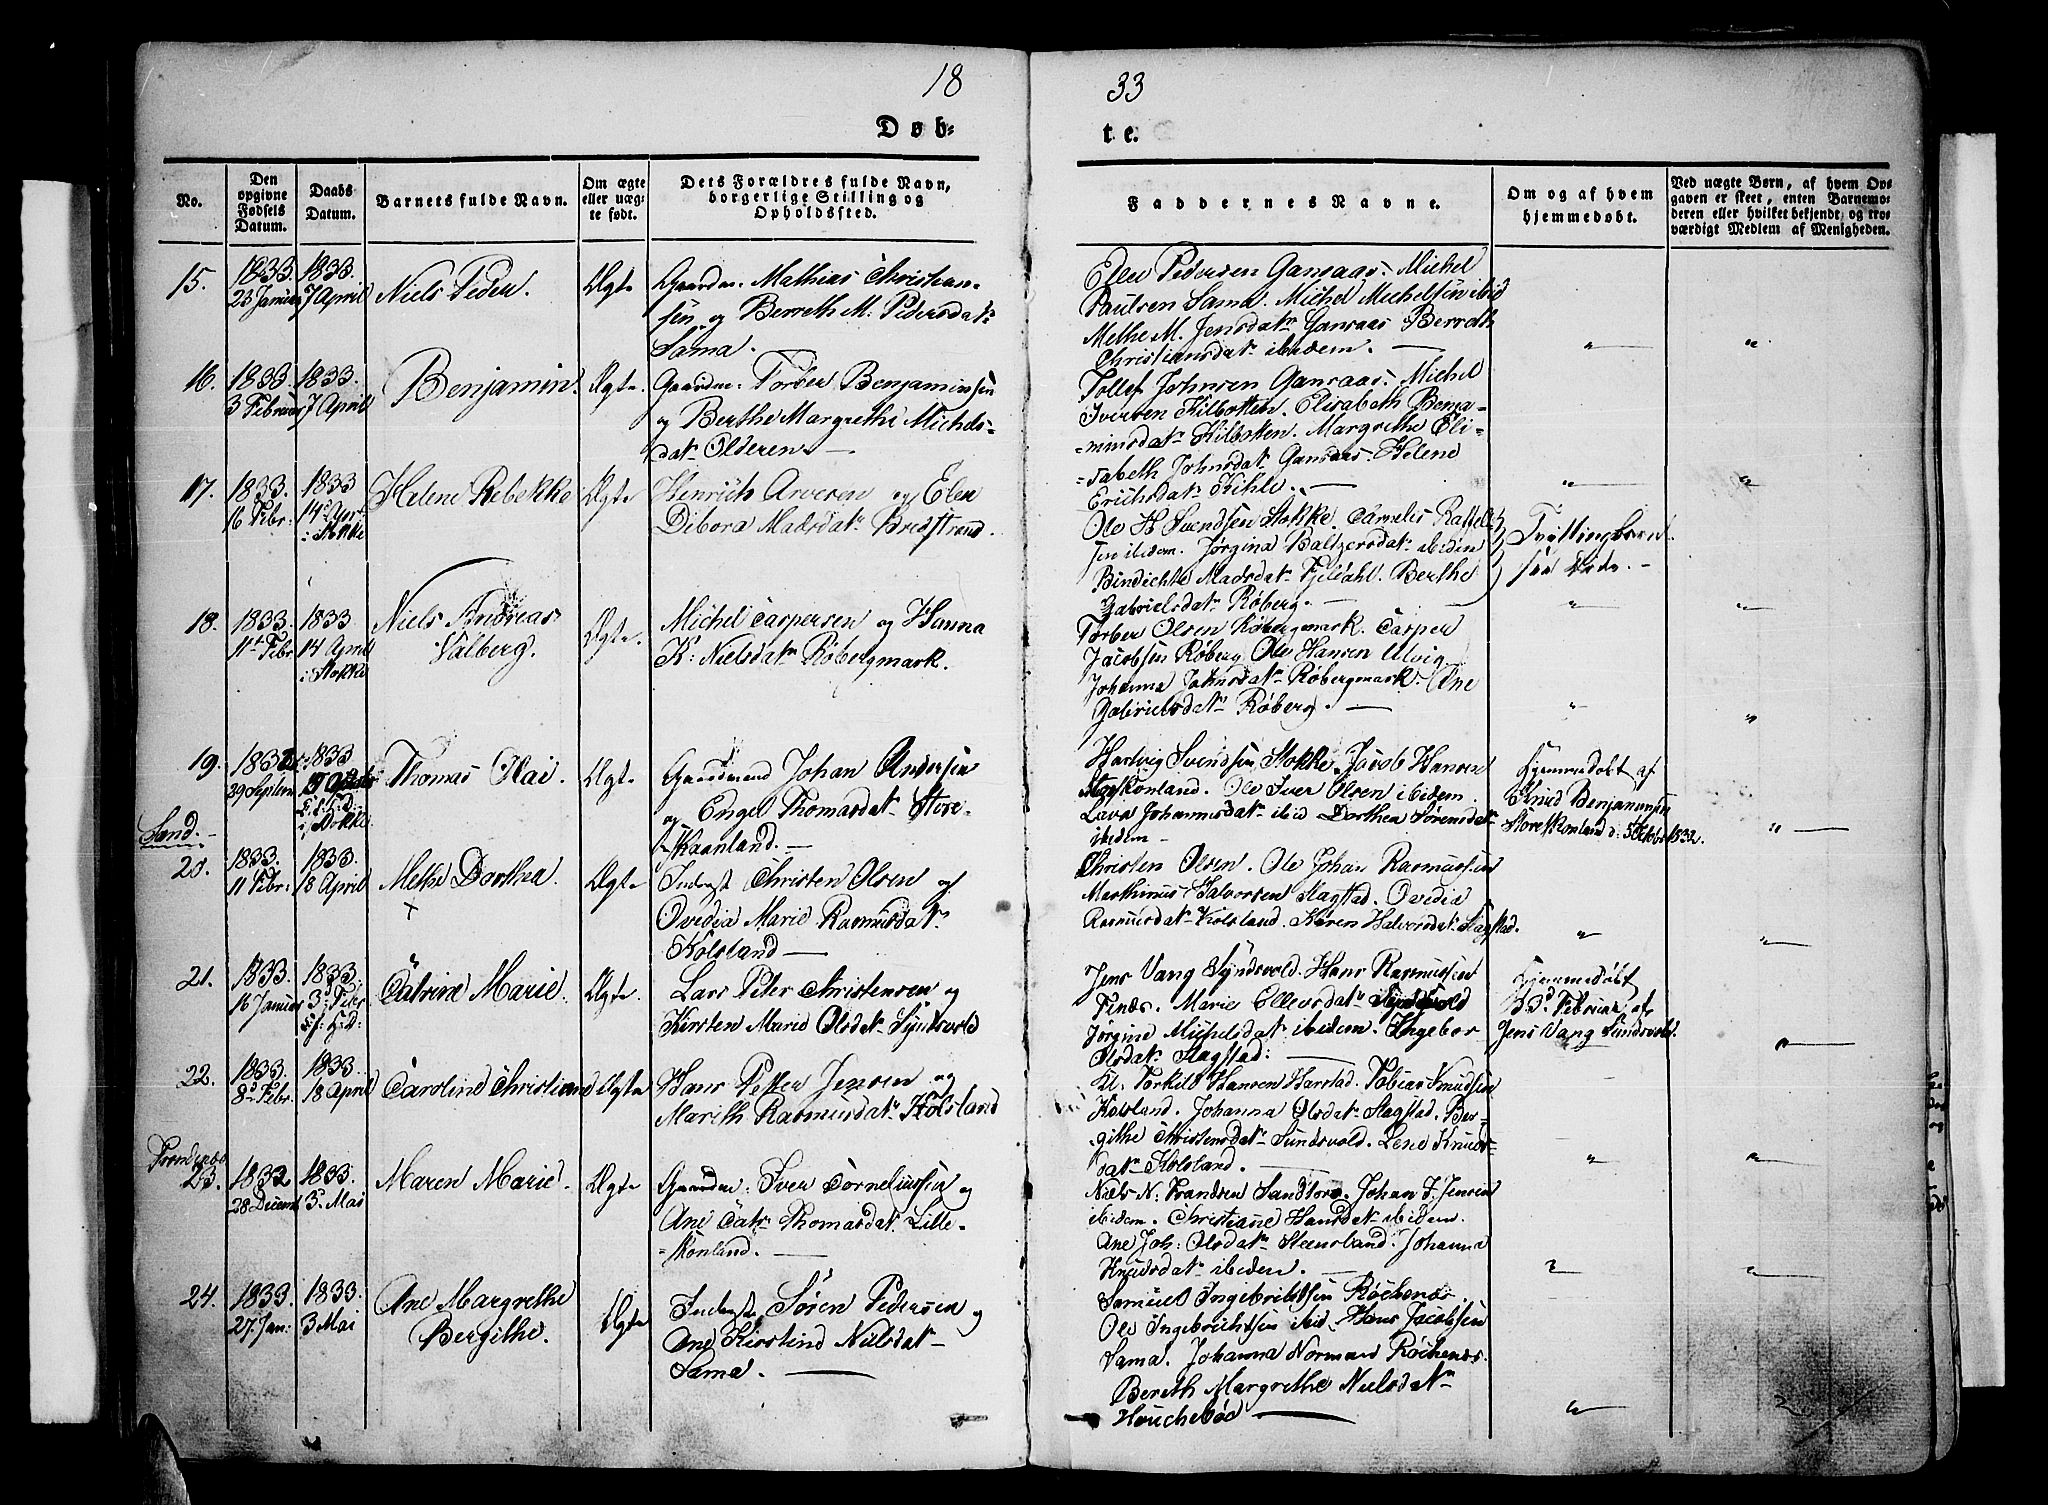 18 33
Døb- te.
No.
Den opgivne Fødsels Datum.
Daabs Datum.
Barnets fulde Navn.
Om ægte eller uægte født.
Dets Forældres fulde Navn, borgerlige Stilling og Opholdssted.
Faddernes Navne.
Om og af hvem hjemmedøbt.
Ved uægte Børn, af hvem Opgaven er skeet, enten Barnemoderen eller hvilket bekjendt og troværdigt Medlem af Menigheden.
15.
1833.
23 Januar
1833.
7 April
Niels Peder.
Ægte
Gaardm: Mathias Christian-
sen og Berreth M: Pedersdatr
Sama.
Elen Pedersen Gansaas. Michel
Paulsen Sama. Michel Michelsen ibid
Methe M. Jensdatr Gansaas Berreth
Christiansdatr ibidem.
16.
1833.
3 Februar
1833.
7 April
Benjamin.
Ægte.
Gaardm: Torber Benjaminsen
og Berthe Margrethe Michels-
datr Olderen.
Tollef Johnsen Gansaas. Michel
Iversen Kilbotten. Elisabeth Benja-
minsdatr Kilbotten. Margrethe Eli-
sabeth Johnsdatr Gansaas. Helene
Erichsdatr Kihle.
17.
1833.
16 Febr:
1833
14de April
i Stokke
Helene Rebekke
Ægte
Henrich Arvesen og Elen
Debora Madsdatr Bredstrand.
Ole H Svendsen Stokke. Cornelis
sen ibidem. Jørgina Baltzersdatr ibidem
Bindichte Madsdatr Fjeldahl. Berthe
Gabrielsdatr Røberg.
Tvillingbarn
18.
1833.
11t Febr.
1833
14 April
i Stokke
Niels Andreas
Valberg.
Ægte.
Michel Caspersen og Hanna
K: Nielsdatr Røbergmark.
Torber Olsen Røbergmark. Casper
Jacobsen Røberg Ole Hansen Ulvig
Johanna Johnsdatr Røbergmark. Ane
Gabrielsdatr Røberg.
19.
1832
29 Septem
1833
i Stokke.
Thomas Olai.
Ægte
Gaardmand Johan Andersen
og Engel Thomasdatr Store-
skaanland.
Hartvig Svendsen Stokke. Jacob Hansen
Skonland. Ole Iver Olsen ibidem.
Lava Johannesdatr ibid Dorthea Sørensdatr
ibidem
Hjemmedøbt af
Knud Benjaminsen
Storeskonland d. 5 Octobr 1832.
Sand.
20.
1833.
11 Febr:
1833.
18 April
Methe Dorthea
Ægte
Inderst Christen Olsen og
Ovedia Marie Rasmusdatr
Kolsland
Christen Olsen. Ole Johan Rasmussen
Marthinus Halvorsen Slagstad. Ovedia
Rasmusdatr Kolsland. Karen Halvorsdatr Slagstad.
21.
1833.
16 Januar
1833.
3d Febr
Catrine Marie.
Ægte.
Lars Peter Christensen og
Kirsten Marie Olsdatr Syndsvold
Jens Vang Syndsvold. Hans Rasmussen
Finæs. Marie Ellevsdatr Syndsvold
Jørgine Michelsdatr ibidem. Ingebor
Olsdatr Slagstad:
Hjemmedøbt
3d Februar af
Jens Vang Sundsvold.
22.
1833.
8d Febr.
1833.
18 April
Caroline Christiane
Ægte
Hans Petter Jensen og
Marith Rasmusdatr Kolsland
Kl. Torkils Hansen Harstad. Tobias Knudsen
Kolsland. Johanna Olsdatr Slagstad. Ber-
githe Christensdatr Sundsvold. Lene Knuds-
datr Kolsland.
Trondenæs
23.
1832
28 Decem
1833.
3d Mai
Maren Marie.
Ægte
Gaardm: Iver Corneliussen og
Ane Catr Thomasdatr Lille-
skonland.
Niels N: Trandsen Sandtorv. Johan F. Jensen
ibidem. Christiane Hansdatr ibidem.
Ane Joh: Olsdatr Steensland. Johanna
Knudsdatr ibidem.
24.
1833.
27. Jan:
1833.
3 Mai
Ane Margrethe
Bergithe.
Ægte
Inderst Søren Pedersen og
Ane Kirstine Nielsdatr
Sama.
Samuel Ingebrichtsen Røchenæs.
Ole Ingebrichtsen ibid. Hans Jacobsen
Sama. Johanna Norman Røchenæs.
Bereth Margrethe Nielsdatr
Houchebøe